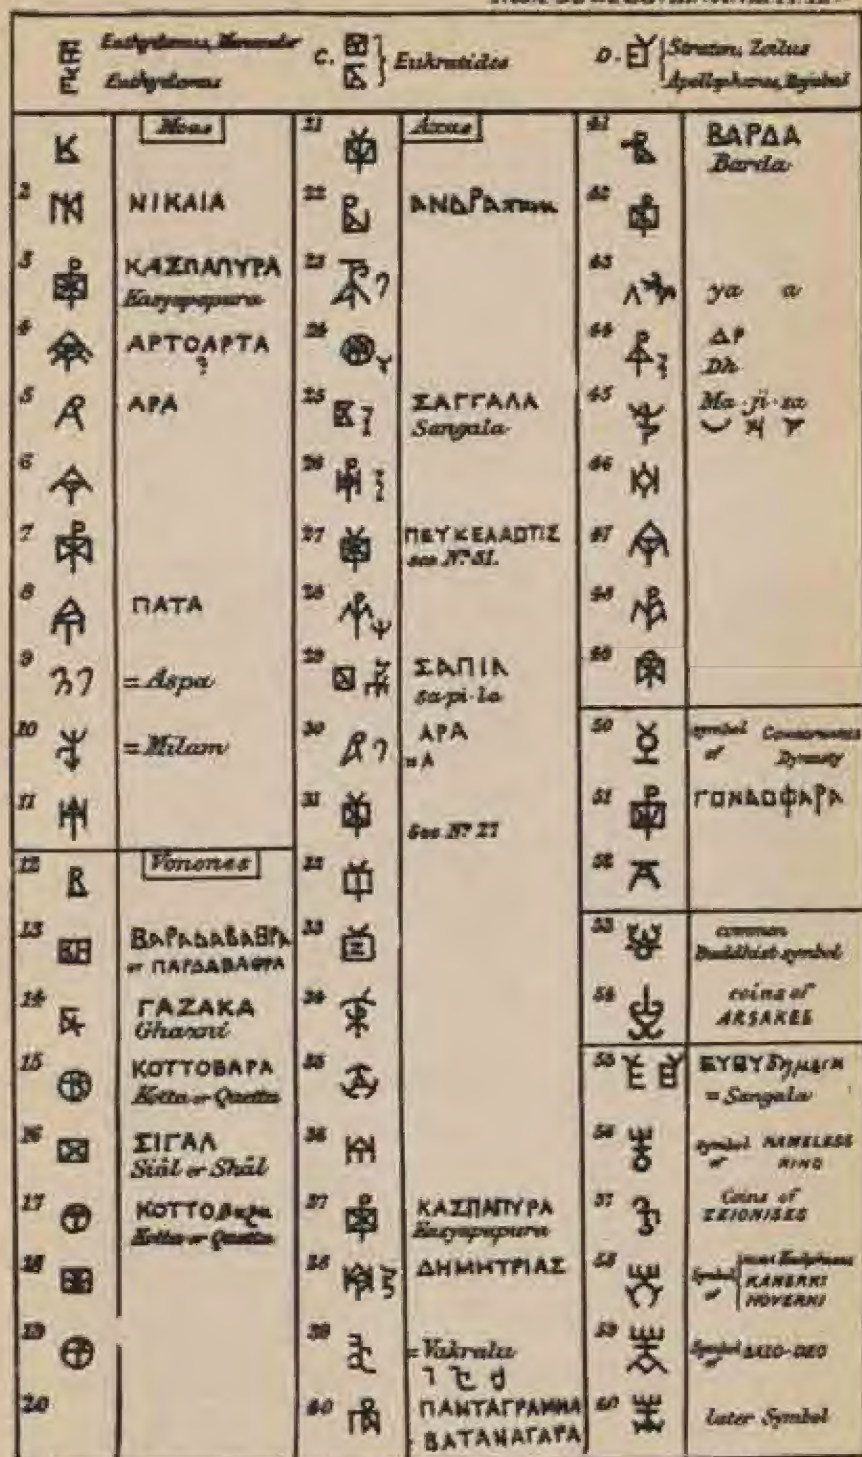 Euthydemus, Menander
Euthydemus
C. Eukratides
D. Straton, Zoilus
Apollophanes, Rajubul
Moas
2 ΝΙΚΑΙΑ
3 ΚΑΣΠΑΠΥΡΑ
Kasyapapura
4 ΑΡΤΟΑΡΤΑ
?
5 ΑΡΑ
6
7
8 ΠΑΤΑ
9 = Aspa
10 = Milam
11
12 Vonones
13 ΒΑΡΔΑΒΑΘΡΑ
or ΠΑΡΔΑΒΑΘΡΑ
14 ΓΑΖΑΚΑ
Ghazni
15 ΚΟΤΤΟΒΑΡΑ
Kotta or Quetta
16 ΣΙΓΑΛ
Siâl or Shâl
17 ΚΟΤΤΟβαρα
Kotta or Quetta
18
19
20
21 Azas
22 ΑΝΔΡΑ
23
24
25 ΣΑΓΓΑΛΑ
Sangala
26
27 ΠΕΥΚΕΛΑΩΤΙΣ
see Nº 51.
28
29 ΣΑΠΙΛ
sa·pi·la
30 ΑΡΑ
= A
31 See Nº 27
32
33
34
35
36
37 ΚΑΣΠΑΠΥΡΑ
Kasyapapura
38 ΔΗΜΗΤΡΙΑΣ
39 = Vakralu
40 ΠΑΝΤΑΓΡΑΜΜΑ
ΒΑΤΑΝΑΓΑΡΑ
41 ΒΑΡΔΑ
Barda
42
43 ya a
44 ΔΡ
Dh
45 Ma·ji·sa
46
47
48
49
50 symbol of Gondophares Dynasty
51 ΓΟΝΔΟΦΑΡΑ
52
53 common
Buddhist symbol
54 coins of
ARSAKES
55 ΕΥΘΥδημεια
= Sangala
56 symbol of NAMELESS KING
57 Coins of
ZEIONISES
58 Symbol of
KANERKI
HOVERKI
59 Symbol of
60 later Symbol